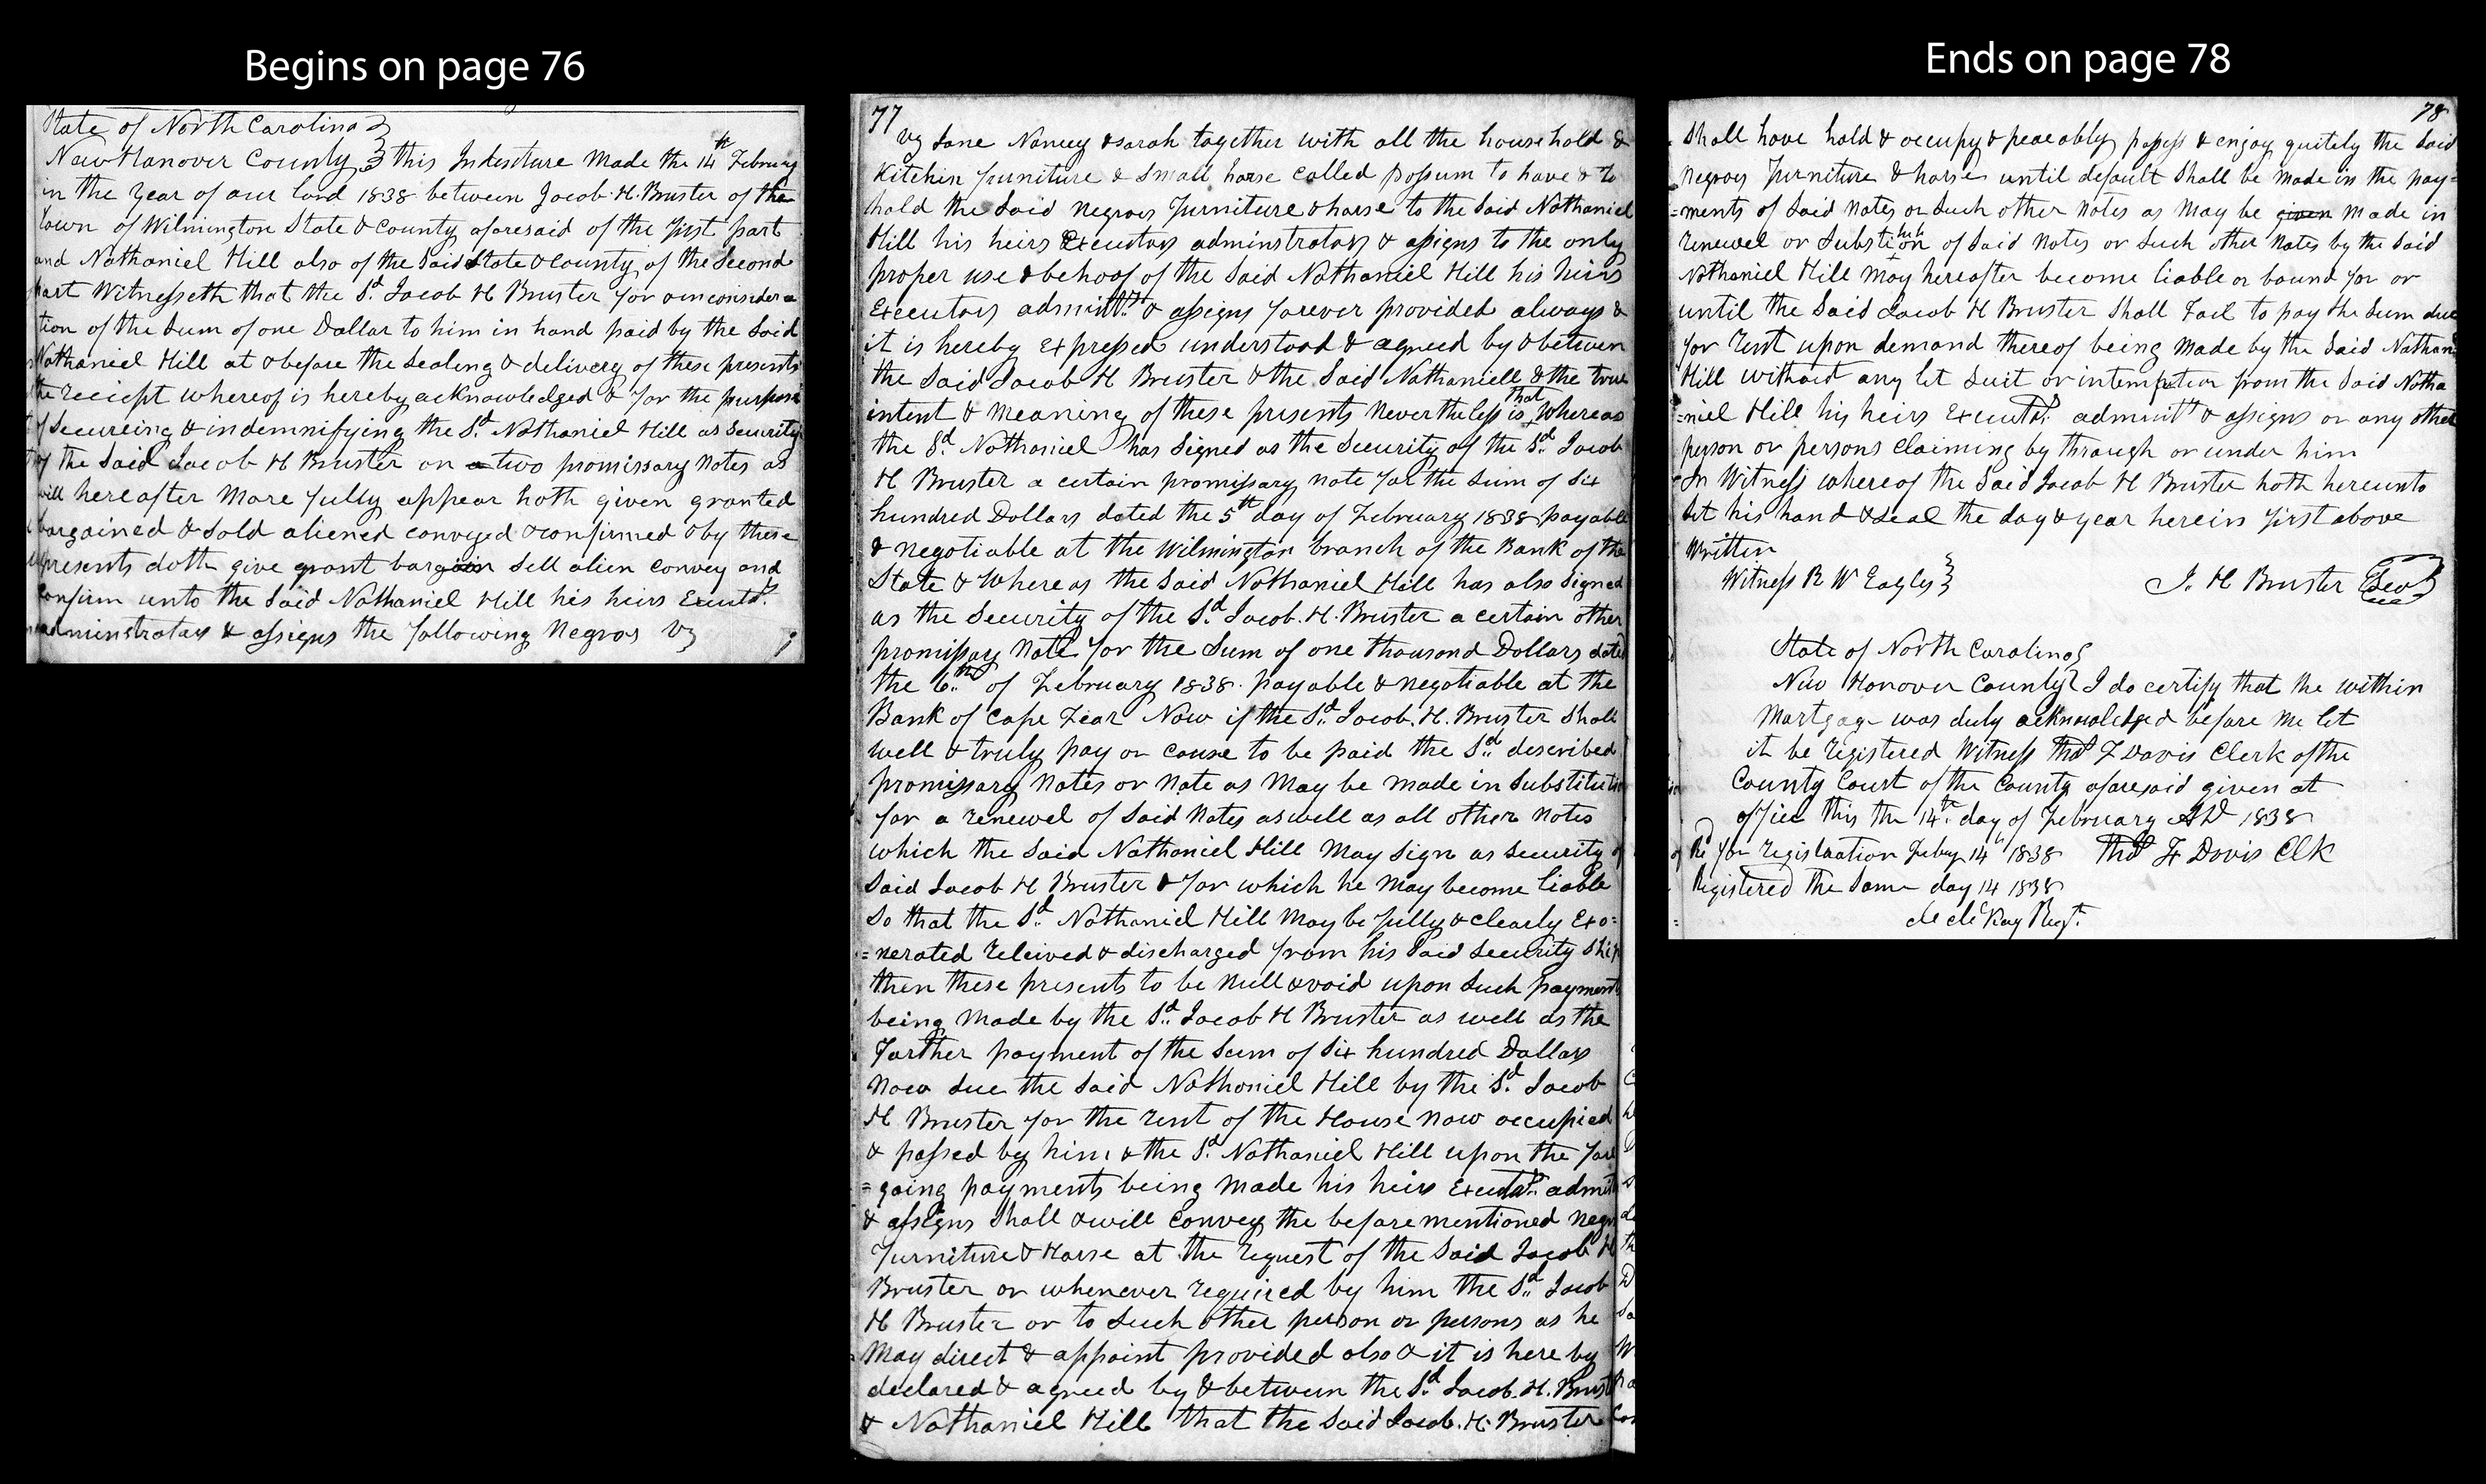 Begins on page 76
State of North Carolina
New Hanover County this Indenture Made the 14th February
in the Year of our lord 1838 between Jacob. H. Bruster of the
Town of Wilmington State & County aforesaid of the first part
and Nathaniel Hill also of the Said State & County of the Second
part Witnesseth that the Sd. Jacob H Bruster for a in considera
tion of the Sum of one Dollar to him in hand paid by the Said
Nathaniel Hill at & before the Sealing & delivery of these presents
the reciept whereof is hereby acknowledged & for the purpose
of Secureing & indemnifying the Sd. Nathaniel Hill as Security
of the Said Jacob H Bruster on a two promissary Notes as
will hereafter More fully appear hath given granted
bargained & Sold aliened conveyed & confirmed & by these
presents doth give grant bargain Sell alien Convey and
Confirm unto the Said Nathaniel Hill his heirs Executrs.
adminstrators & assigns the following Negros Vz
77
Vz Jane Nancy & sarah together with all the household &
Kitchin furniture & Small horse called possum to have & to
hold the Said Negroes furniture & horse to the Said Nathaniel
Hill his heirs Executors adminstrators & assigns to the only
proper use & behoof of the Said Nathaniel Hill his heirs
Executors adminttrs & assigns forever provided always &
it is hereby Expressed understood & agreed by & between
the Said Jacob H Bruster & the Said Nathaniell & the true
intent & Meaning of these presents Nevertheless is that Whereas
the Sd. Nathaniel has Signed as the Security of the Sd. Jacob
H Bruster a certain promissary note for the Sum of Six
hundred Dollars dated the 5th day of February 1838 payable
& Negotiable at the Wilmington branch of the Bank of the
State & Whereas the Said Nathaniel Hill has also Signed
as the Security of the Sd. Jacob. H. Bruster a certain other
promissay Note for the Sum of one thousand Dollars dated
the 6th of February 1838. payable & Negotiable at the
Bank of Cape Fear Now if the Sd. Jacob. H. Bruster Shall
well & truly pay or cause to be paid the Sd. described
promissary Notes or Note as May be made in Substitution
for a renewel of Said Notes as well as all other Notes
which the Said Nathaniel Hill May Sign as Security of
Said Jacob H Bruster & for which he May become liable
So that the Sd. Nathaniel Hill May be fully & clearly Exo=
=nerated releived & discharged from his Said Security Ship
then these presents to be Null & void upon Such payments
being Made by the Sd. Jacob H Bruster as well as the
Farther payment of the Sum of Six hundred Dollars
Now due the Said Nathaniel Hill by the Sd. Jacob
H Bruster for the rent of the House Now occupied
& possed by him & the Sd. Nathaniel Hill upon the fore
=going payments being Made his heirs Executrs. admit
& assigns Shall & will Convey the before mentioned Negros
Furniture & Horse at the request of the Said Jacob H
Bruster or whenever required by him the Sd. Jacob
H Bruster or to Such other person or persons as he
May direct & appoint provided also & it is here by
declared & agreed by & between the Sd. Jacob. H. Brust
& Nathaniel Hill that the Said Jacob. H. Bruster
Ends on page 78
78
Shall have hold & occupy & peaeably possess & enjoy quitely the Said
Negroes Furniture & horse until default Shall be Made in the pay=
=ments of Said Notes or Such other Notes as May be given Made in
renewel or Substition of Said Notes or Such other Notes by the Said
Nathaniel Hill May hereafter become liable or bound for or
until the Said Jacob H Bruster Shall Fail to pay the Sum due
for Rent upon demand thereof being Made by the Said Nathan
Hill without any let Suit or from the Said Natha
=niel Hill his heirs Executrs. adminttr & assigns or any other
person or persons Claiming by through or under him
In Witness whereof the Said Jacob H Bruster hath hereunto
Set his hand & Seal the day & year herein first above
Written
Witness R W Eagles J. H Bruster Seal
State of North Carolina
New Hanover County I do certify that the within
Mortgage was duly acknowledged before Me let
it be registered Witness Thos F Davis Clerk of the
County Court of the County aforesaid given at
office this the 14th. day of February AD 1838
Re for registration Feby 14th 1838 Thos F Davis Clk
Registered the Same day 14 1838